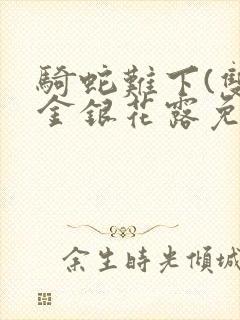 騎蛇難下(雙
金銀花露免
余生時光傾城